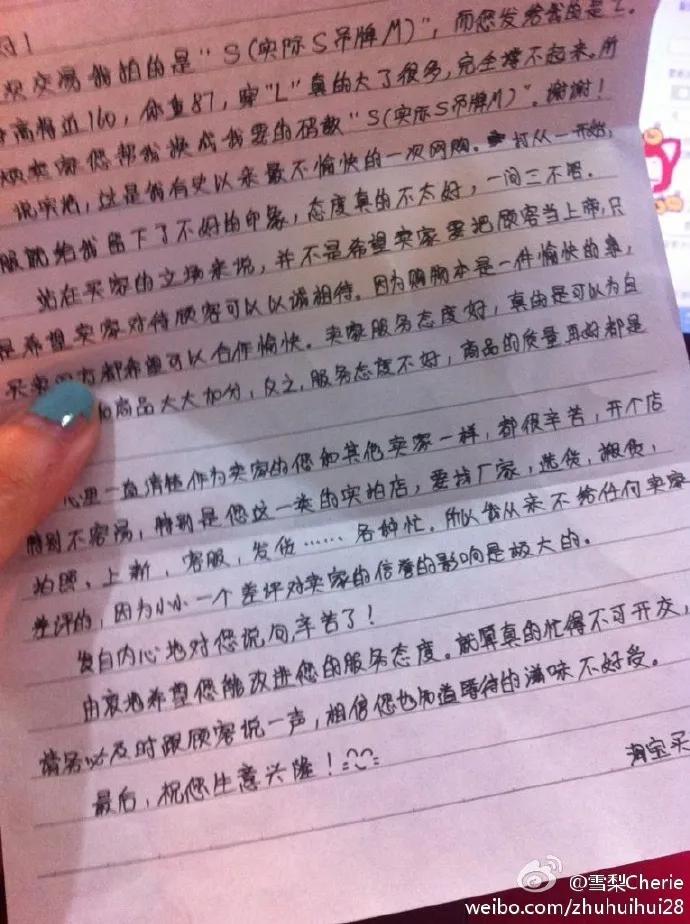 次交易我拍的是“S(实际S吊牌M)”,而您发给我的是L.
高将近160,体重87,穿“L”真的大了很多,完全撑不起来.所
烦卖家您帮我换成我要的码数“S(实际S吊牌M)”.谢谢!
说实话,这是我有史以来最不愉快的一次网购.打从一开始,
服就给我留下了不好的印象,态度真的不太好,一问三不答.
站在买家的立场来说,并不是希望卖家要把顾客当上帝,只
是希望卖家对待顾客可以以诚相待.因为购物本是一件愉快的事,
买卖双方都希望可以合作愉快.卖家服务态度好,真的是可以为自
商品大大加分,反之,服务态度不好,商品的质量再好都是
心里一直清楚作为卖家的您和其他卖家一样,都很辛苦,开个店
特别不容易,特别是您这一类的实拍店,要找厂家,选货,搬货,
拍照、上新,客服,发货……各种忙.所以我从来不给任何卖家
差评的,因为小小一个差评对卖家的信誉的影响是极大的。
发自内心地对您说句,辛苦了!
由衷地希望您能改进您的服务态度.就算真的忙得不可开交,
请务必及时跟顾客说一声,相信您也知道等待的滋味不好受。
最后,祝您生意兴隆!
淘宝买
@雪梨Cherie
weibo.com/zhuhuihui28